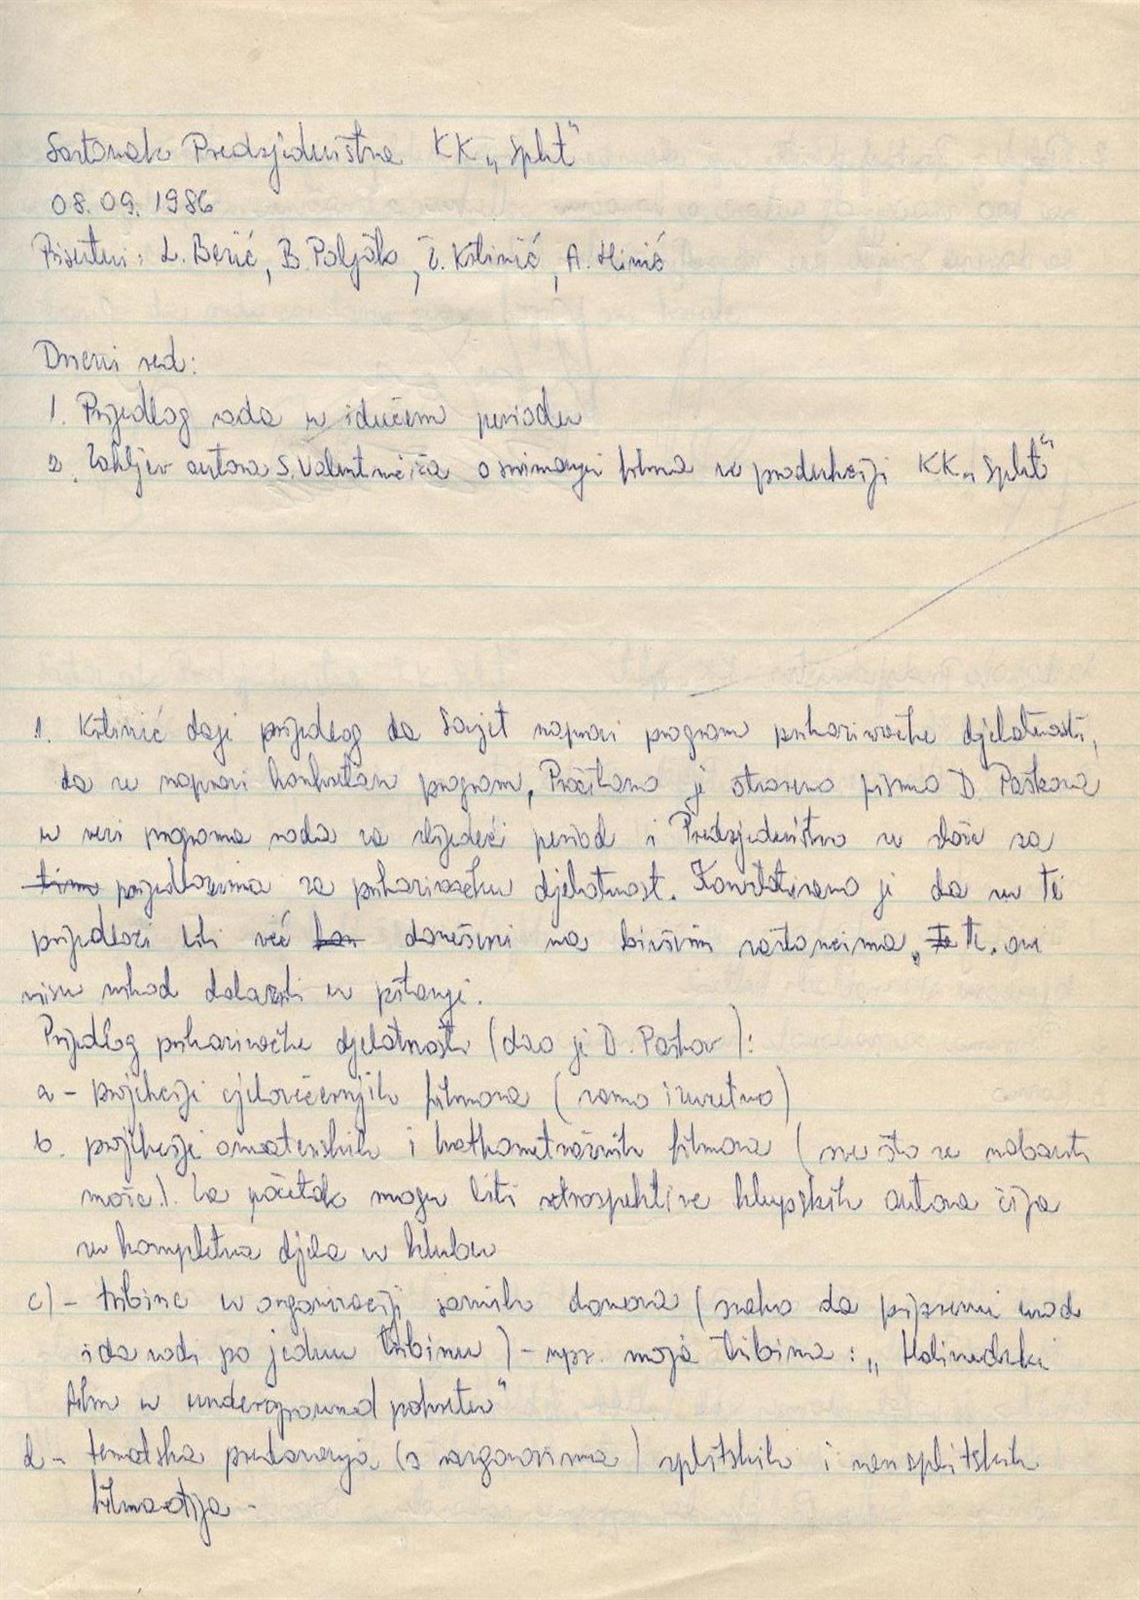 Sastanak Predsjedništva KK „Split"
08.09.1986
Prisutni: L. Berić, B. Poljak, Ž. Krlinić, A.
Dnevni red:
1. Prijedlog rada u idućem periodu
2. Zahtjev autora S. Valentinčića o snimanju filma u produkciji KK „Split"
1. Krlinić daje prijedlog da Savjet napravi program prikazivačke djelatnosti,
da se napravi konkretan program. Pročitano je otvoreno pismo D. Paškova
u vezi programa rada za slijedeći period i Predsjedništvo se slaže sa
prijedlozima za prikazivačku djelatnost. Konstatirano je da su ti
prijedlozi bili već donešeni na bivšim sastancima, tj. oni
nisu nikad dolazili u pitanje.
Prijedlog prikazivačke djelatnosti (dao je D. Paškov):
a - projekcije cjelovečernjih filmova (samo izuzetno)
b. projekcije amaterskih i kratkometražnih filmova (sve što se nabaviti
može). Za početak mogu biti retrospektive klupskih autora čija
su kompletna djela u klubu
c) - tribine u organizaciji samih članova (svako da pripremi uvod
i da vodi po jednu tribinu) - npr. moja tribina: „Holivudski
film u underground pokretu"
d - tematska predavanja (s razgovorima) splitskih i nesplitskih
filmaša -